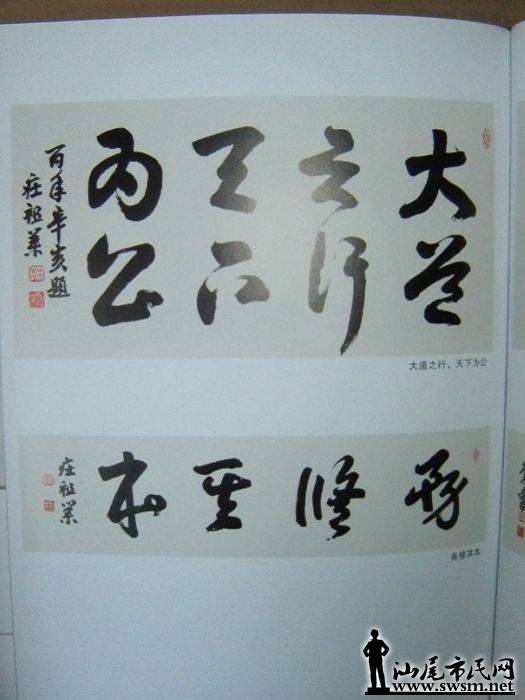 大道
之行
天下
为公
百年辛亥题
庄祖业
大道之行，天下为公
务修其本
庄祖业
务修其本
汕尾市民网
www.swsm.net